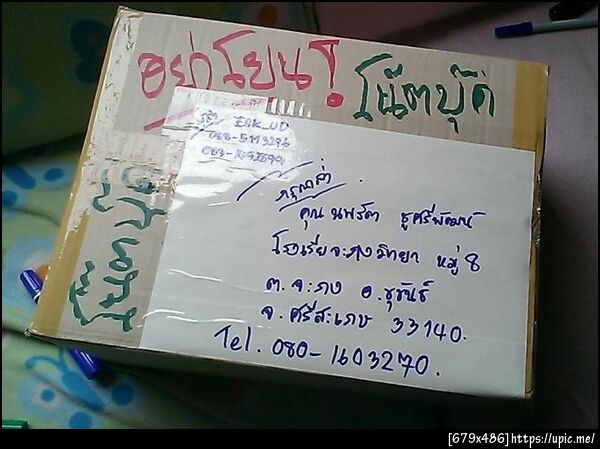 อย่าโยน!
โน๊ตบุ๊ค
โน๊ตบุ๊ค
กรุณาส่ง
คุณ นพรัต ชูศรีพัฒน์
โรงเรียนจะกงวิทยา หมู่ 8
ต.จะกง อ.ขุขันธ์
จ.ศรีสะเกษ 33140.
Tel. 080-1603270.
[679x486]https://upic.me/